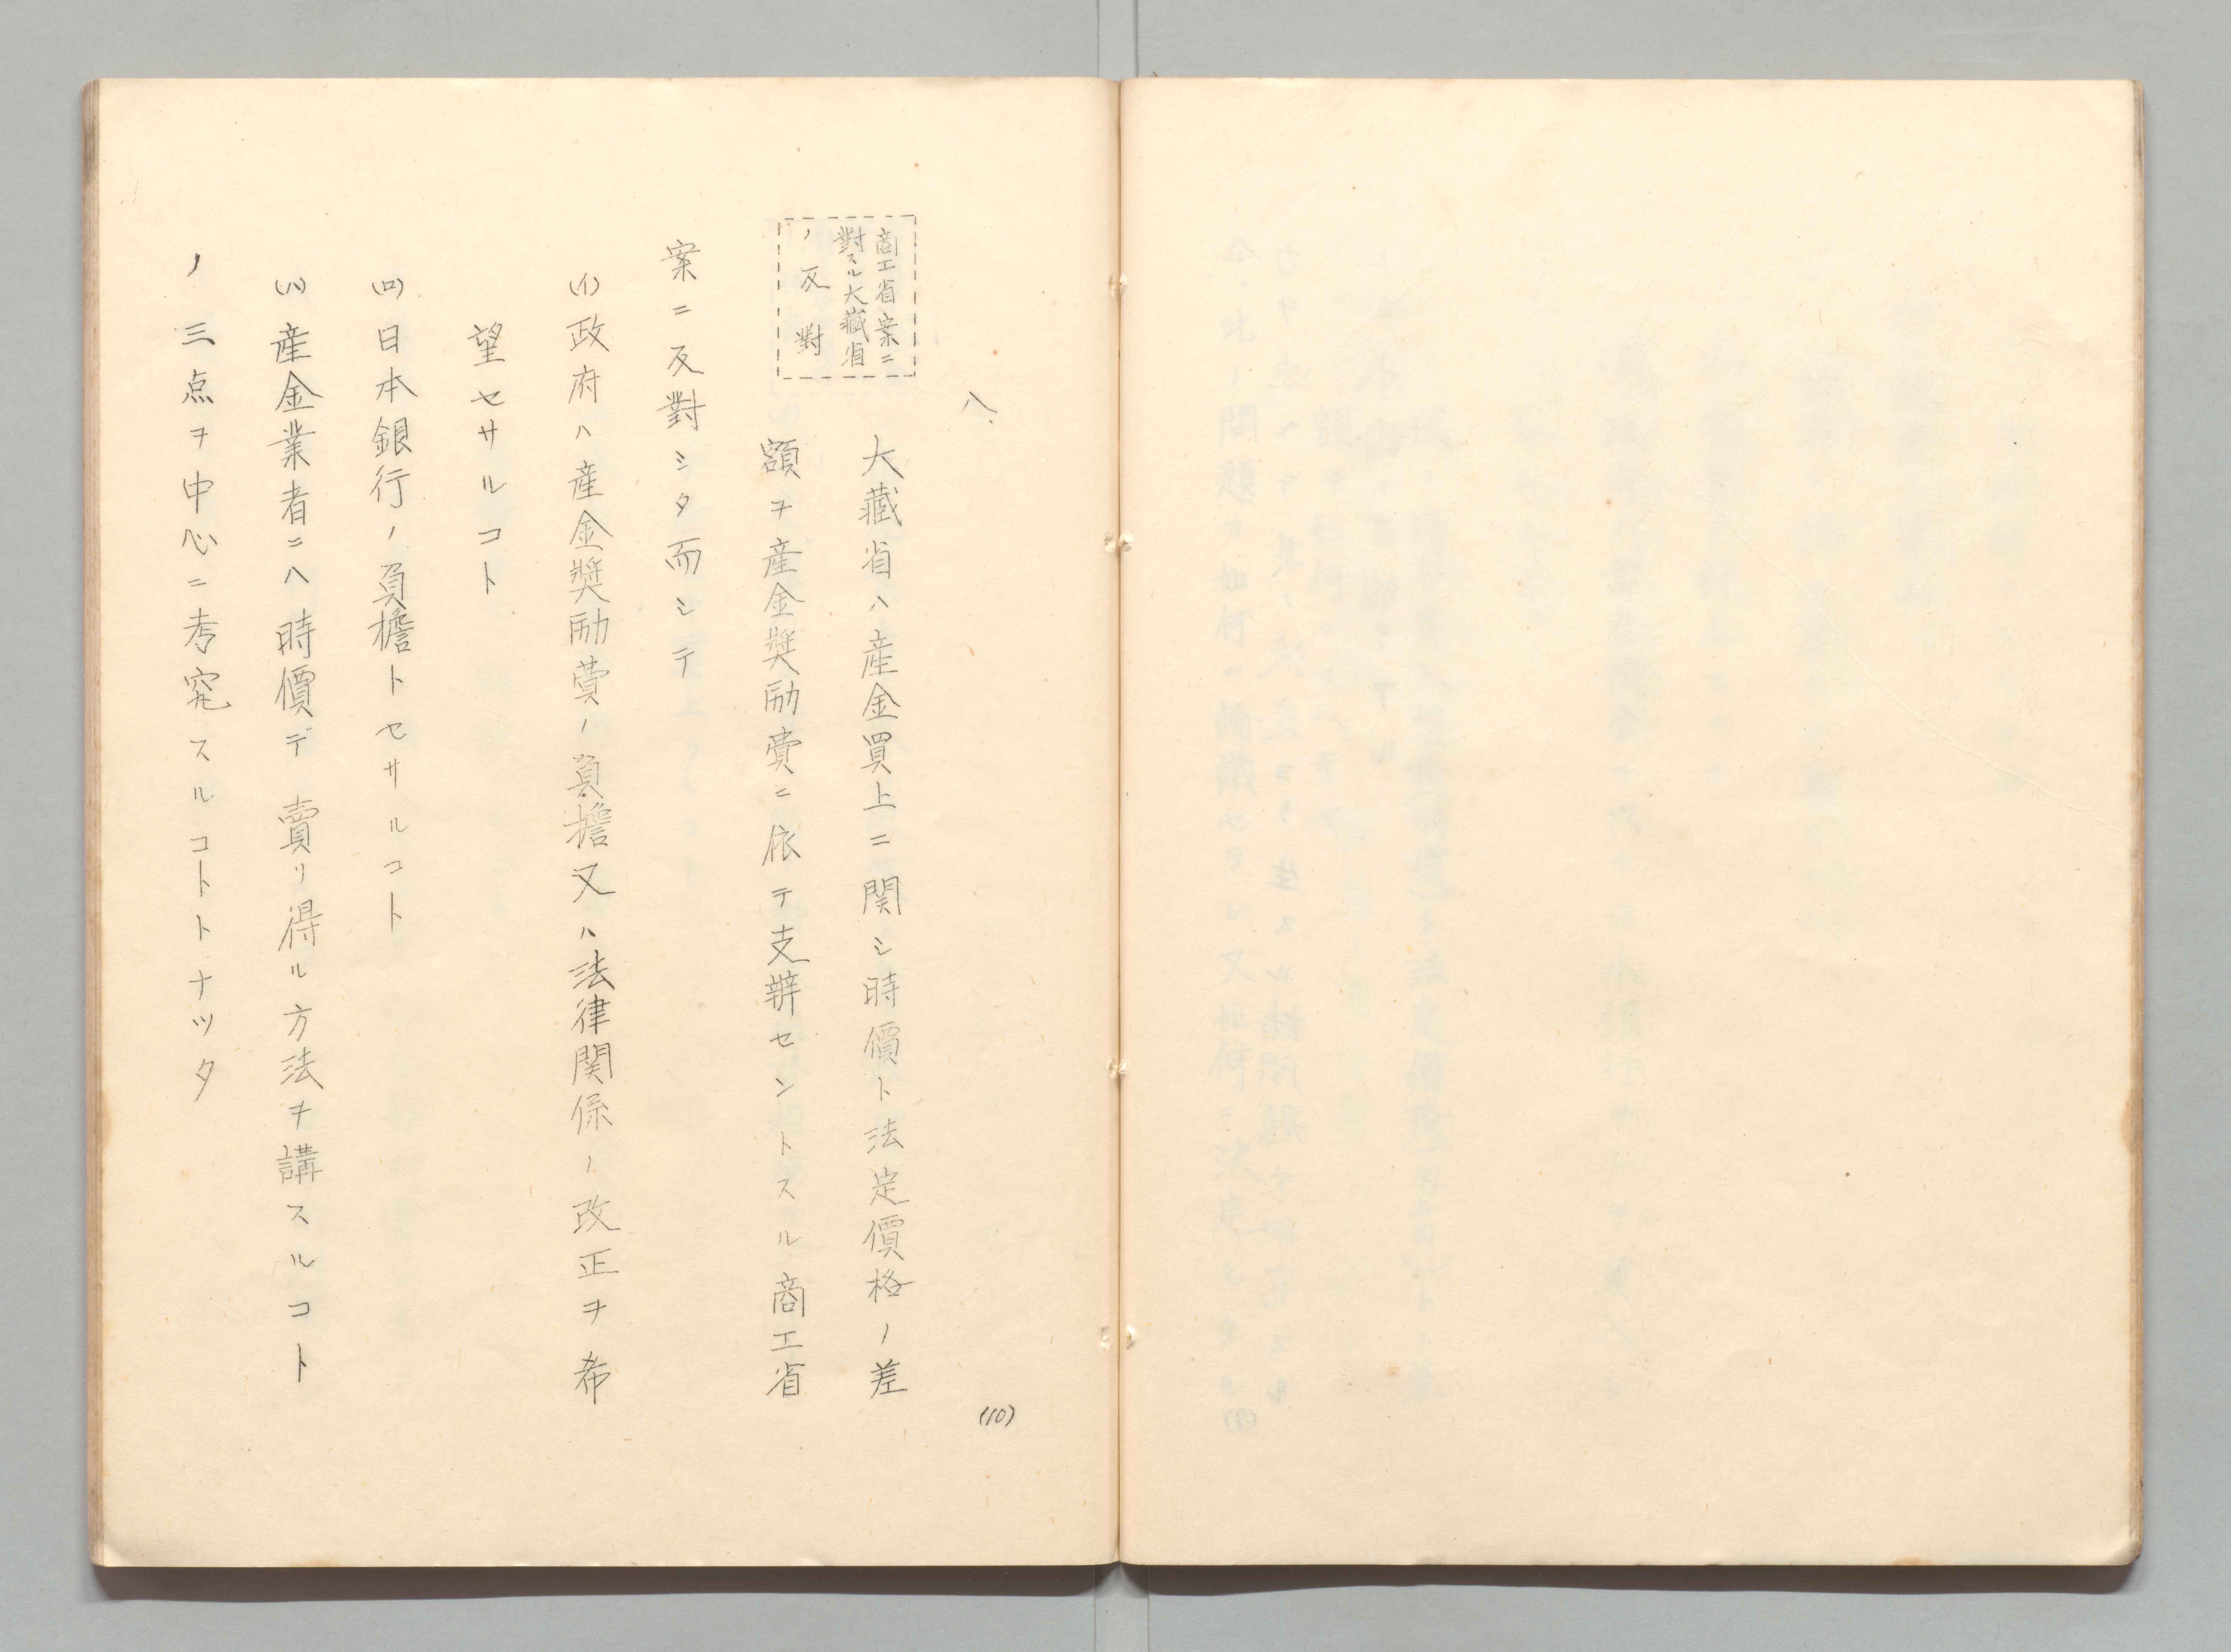 八、
商工省案ニ
對スル大藏省
ノ反對
大藏省ハ産金買上ニ関シ時價ト法定價格ノ差
額ヲ産金奬励費ニ依テ支辨セントスル商工省
案ニ反對シタ而シテ
(イ)政府ハ産金奬励費ノ負擔又ハ法律関係ノ改正ヲ希
望セサルコト
(ロ)日本銀行ノ負擔トセサルコト
(ハ)産金業者ニハ時價デ賣リ得ル方法ヲ講スルコト
ノ三点ヲ中心ニ考究スルコトトナツタ
(10)